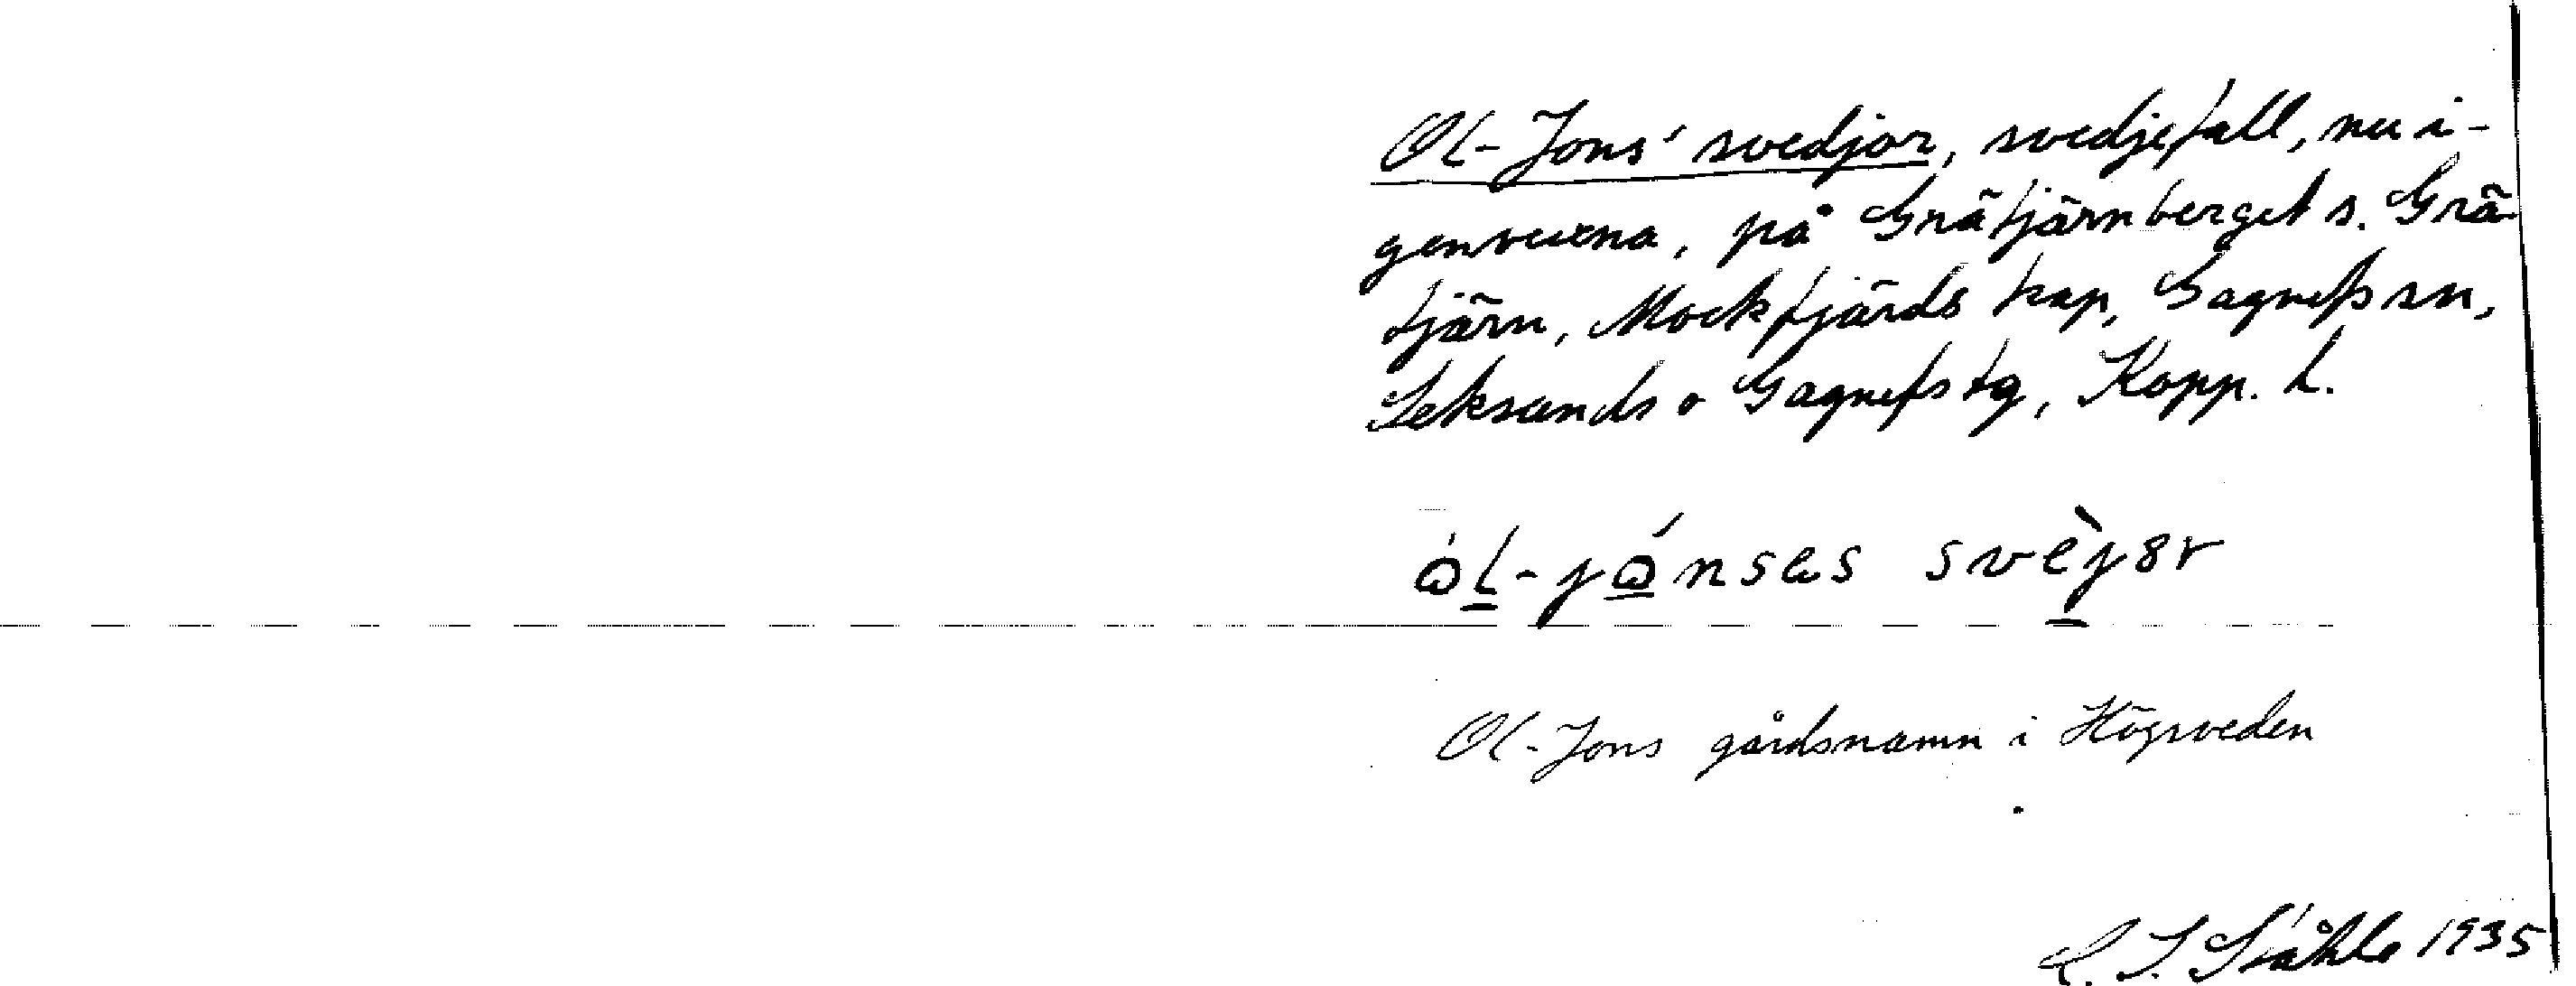 Ol-Jons' svedjor, svedjefall, nu i-
genvuxna, på Grätjärnberget s. Grä-
tjärn, Mockfjärds kap, Gagnefs sn,
Leksands o Gagnefs tg, Kopp. L.
Ol-Jons gårdsnamn i Högsveden
C. I. Ståhle 1935